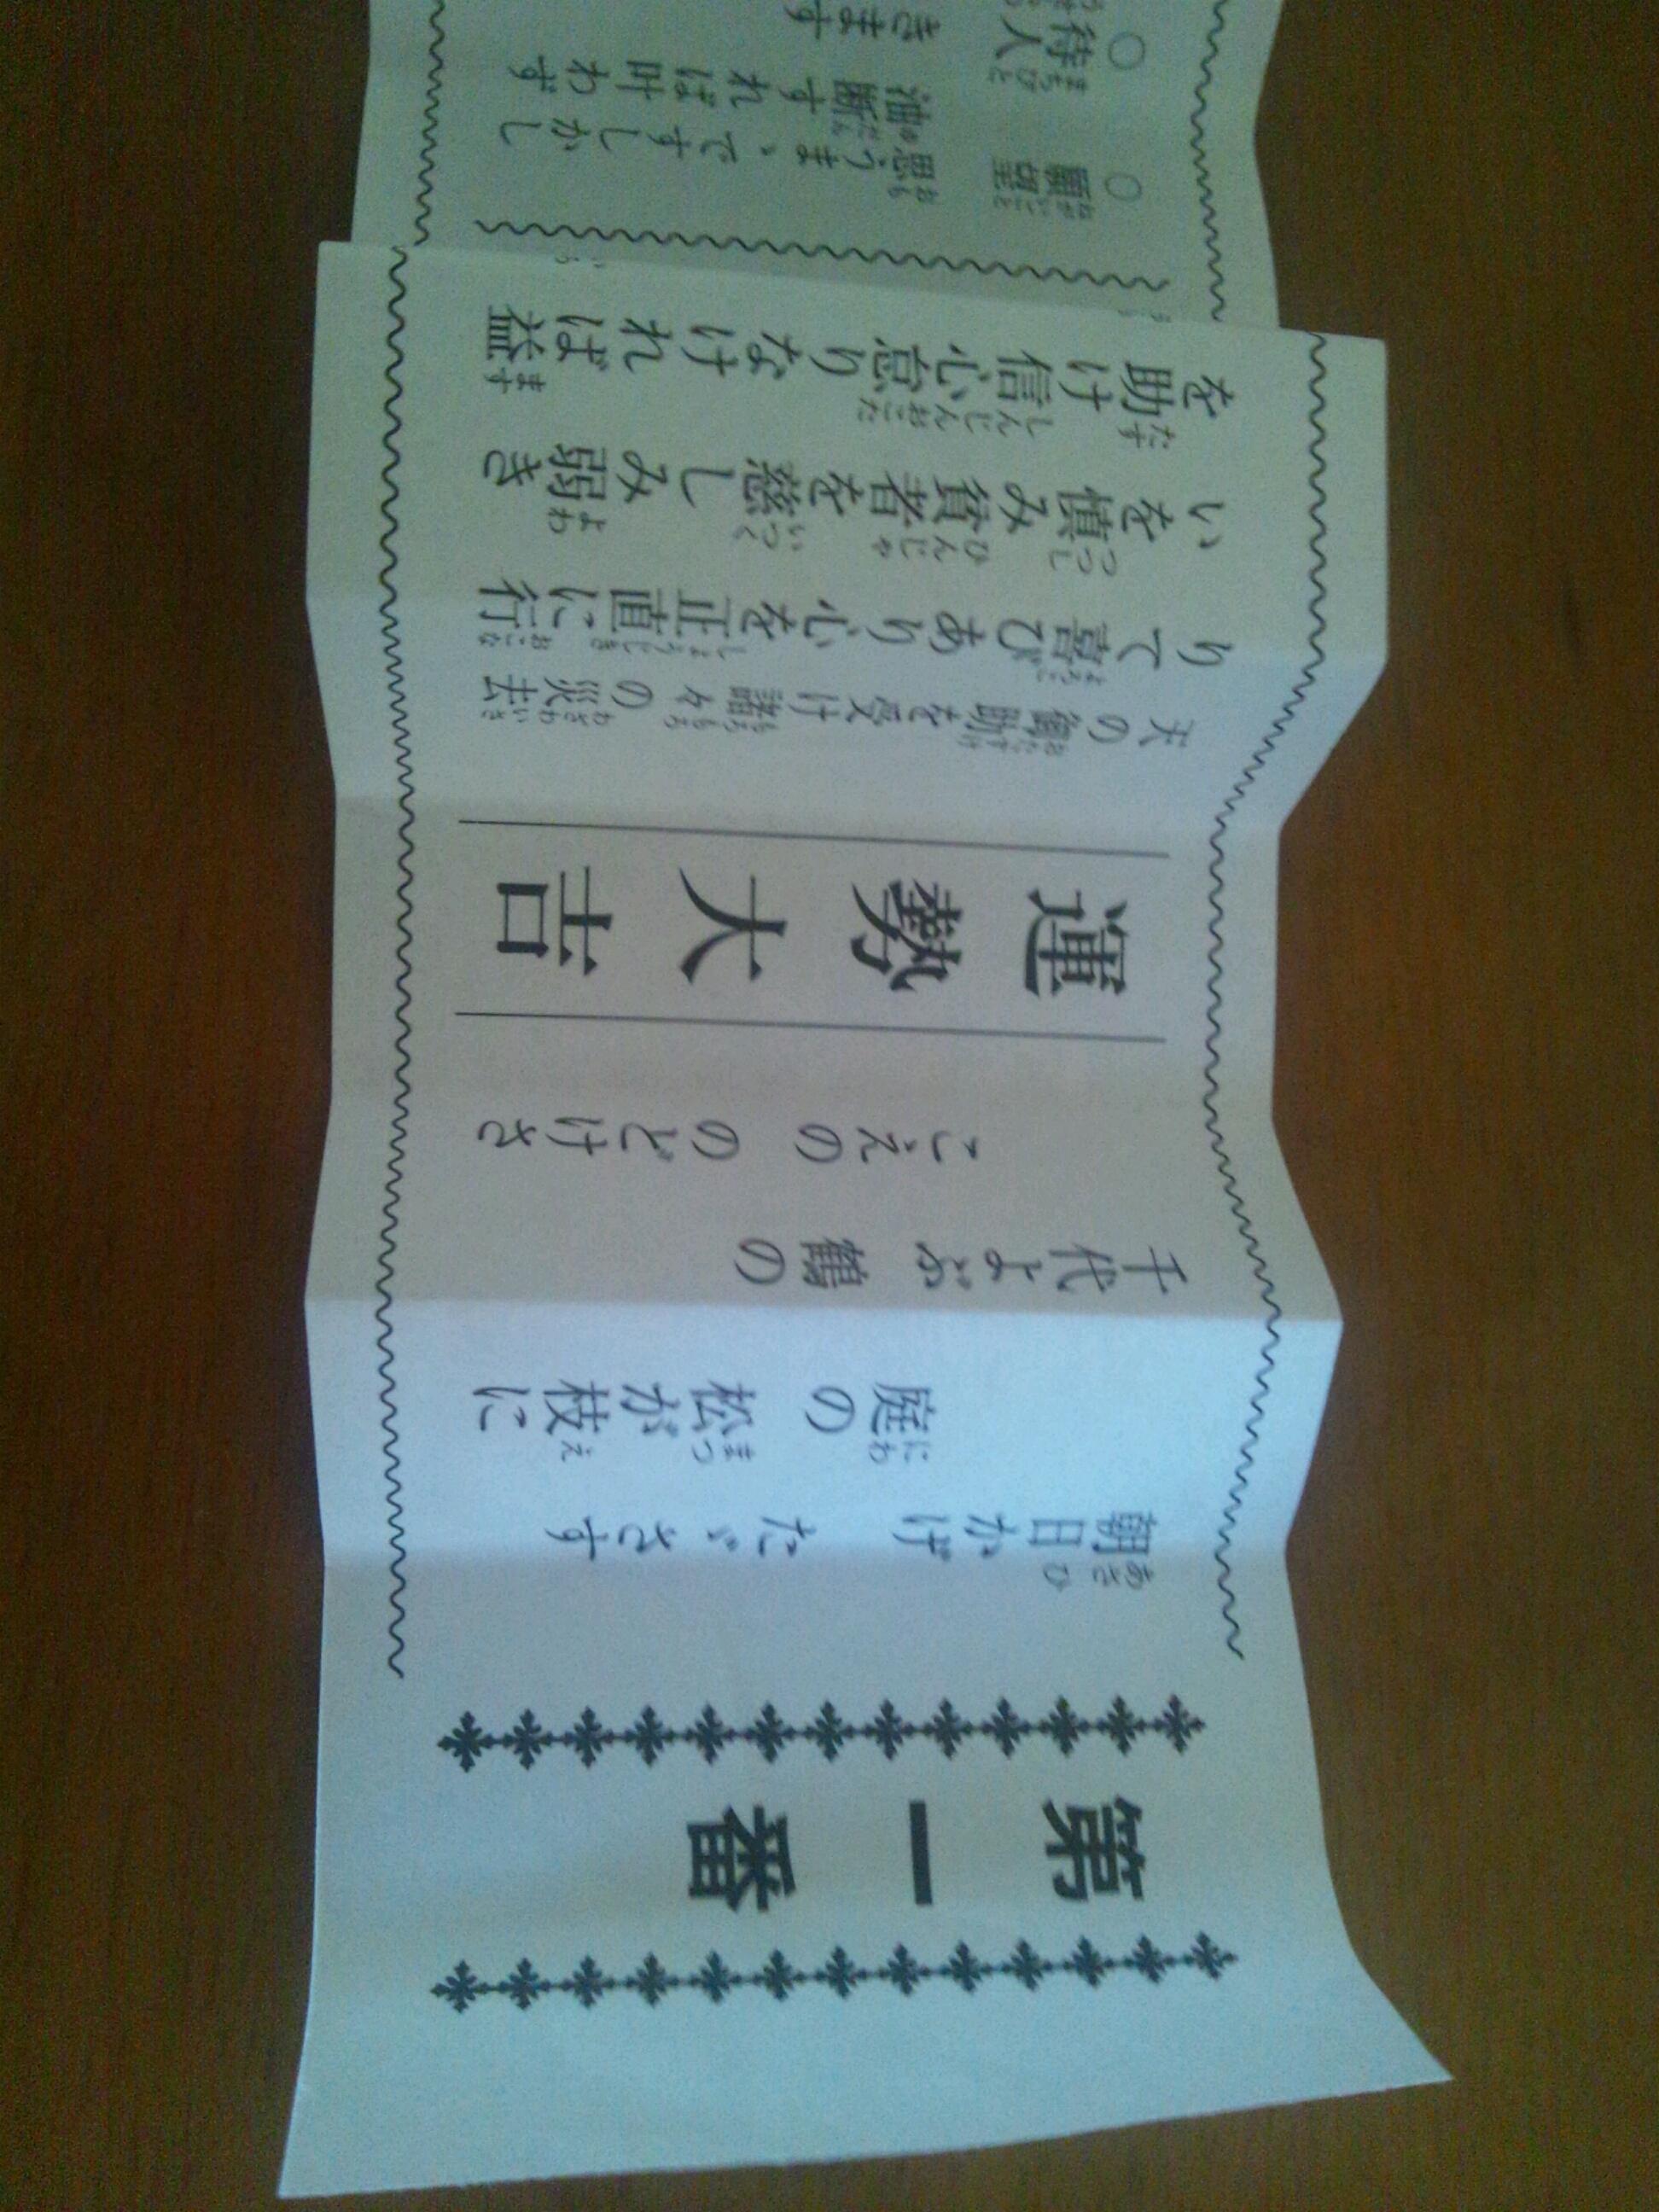 第一番
朝日かげ たゞさす
庭の 松が枝に
千代よぶ 鶴の
こえの のどけさ
運勢大吉
天の御助を受け諸々の災去
りて喜びあり心を正直に行
いを慎み貧者を慈しみ弱き
を助け信心怠りなければ益
○願望 思うまゝですしかし
油断すれば叶わず
○待人 きます